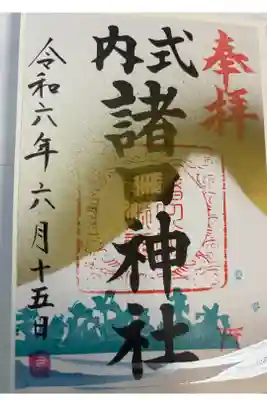 奉拝
式内
諸口神社
令和六年六月十五日